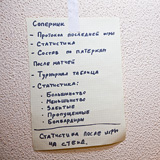 Соперник
- Протокол последней игры
- Статистика
- Состав по матерям
После матчей
- Турнирная таблица
- Статистика:
- Большинство
- Меньшинство
- Забитые
- Пропущенные
- Бомбардиры
Статистика после игры
на стенд.